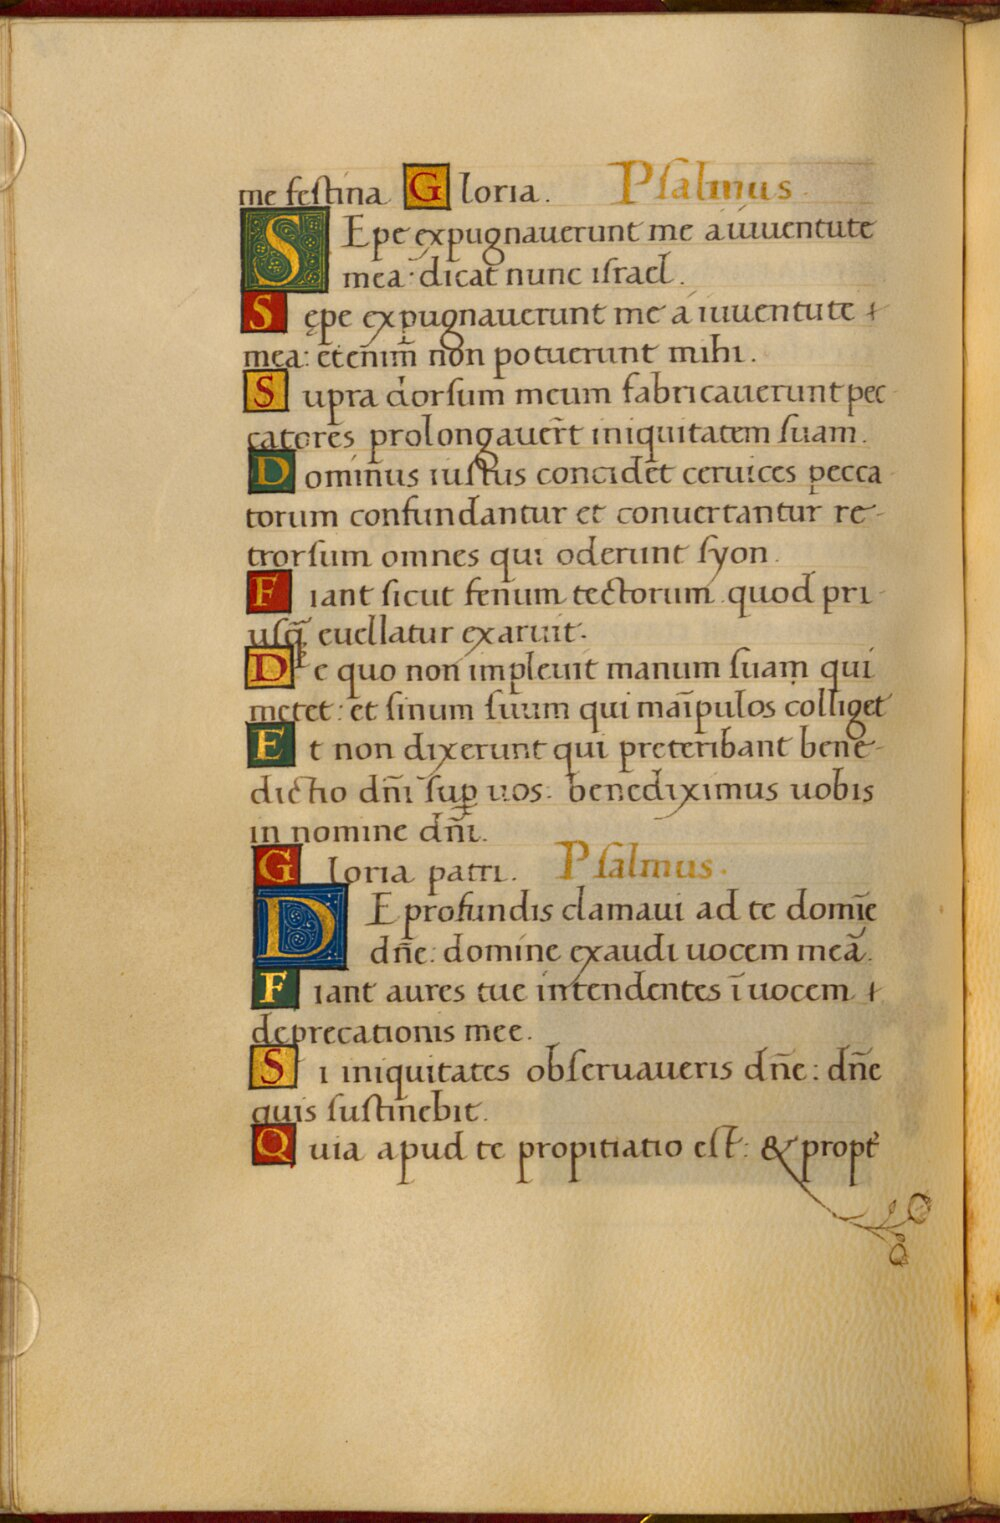 me festina Gloria. Psalmus
SEpe expugnauerunt me a iuuentute
mea· dicat nunc israel.
Sępe expugnauerunt me a iuuentute
mea: etenim̄ non potuerunt mihi.
Supra dorsum meum fabricauerunt pec
catores prolongauer̄t iniquitatem suam.
Dominus iustus concidet ceruices pecca
torum confundantur et conuertantur re-
trorsum omnes qui oderunt syon.
Fiant sicut fenum tectorum quod pri
usq̄ euellatur exaruit.
De quo non impleuit manum suam qui
metet: et sinum suum qui māipulos colliget
Et non dixerunt qui preteribant bene-
dictio dn̄i sup̱ uos: benediximus uobis
in nomine dn̄i.
Gloria patri. Psalmus.
DE profundis clamaui ad te domīe
dn̄e: domine exaudi uocem meā.
Fiant aures tue intendentes ī uocem
deprecationis mee.
Si iniquitates obseruaueris dn̄e: dn̄e
quis sustinebit.
Quia apud te propitiatio est: & propt̉